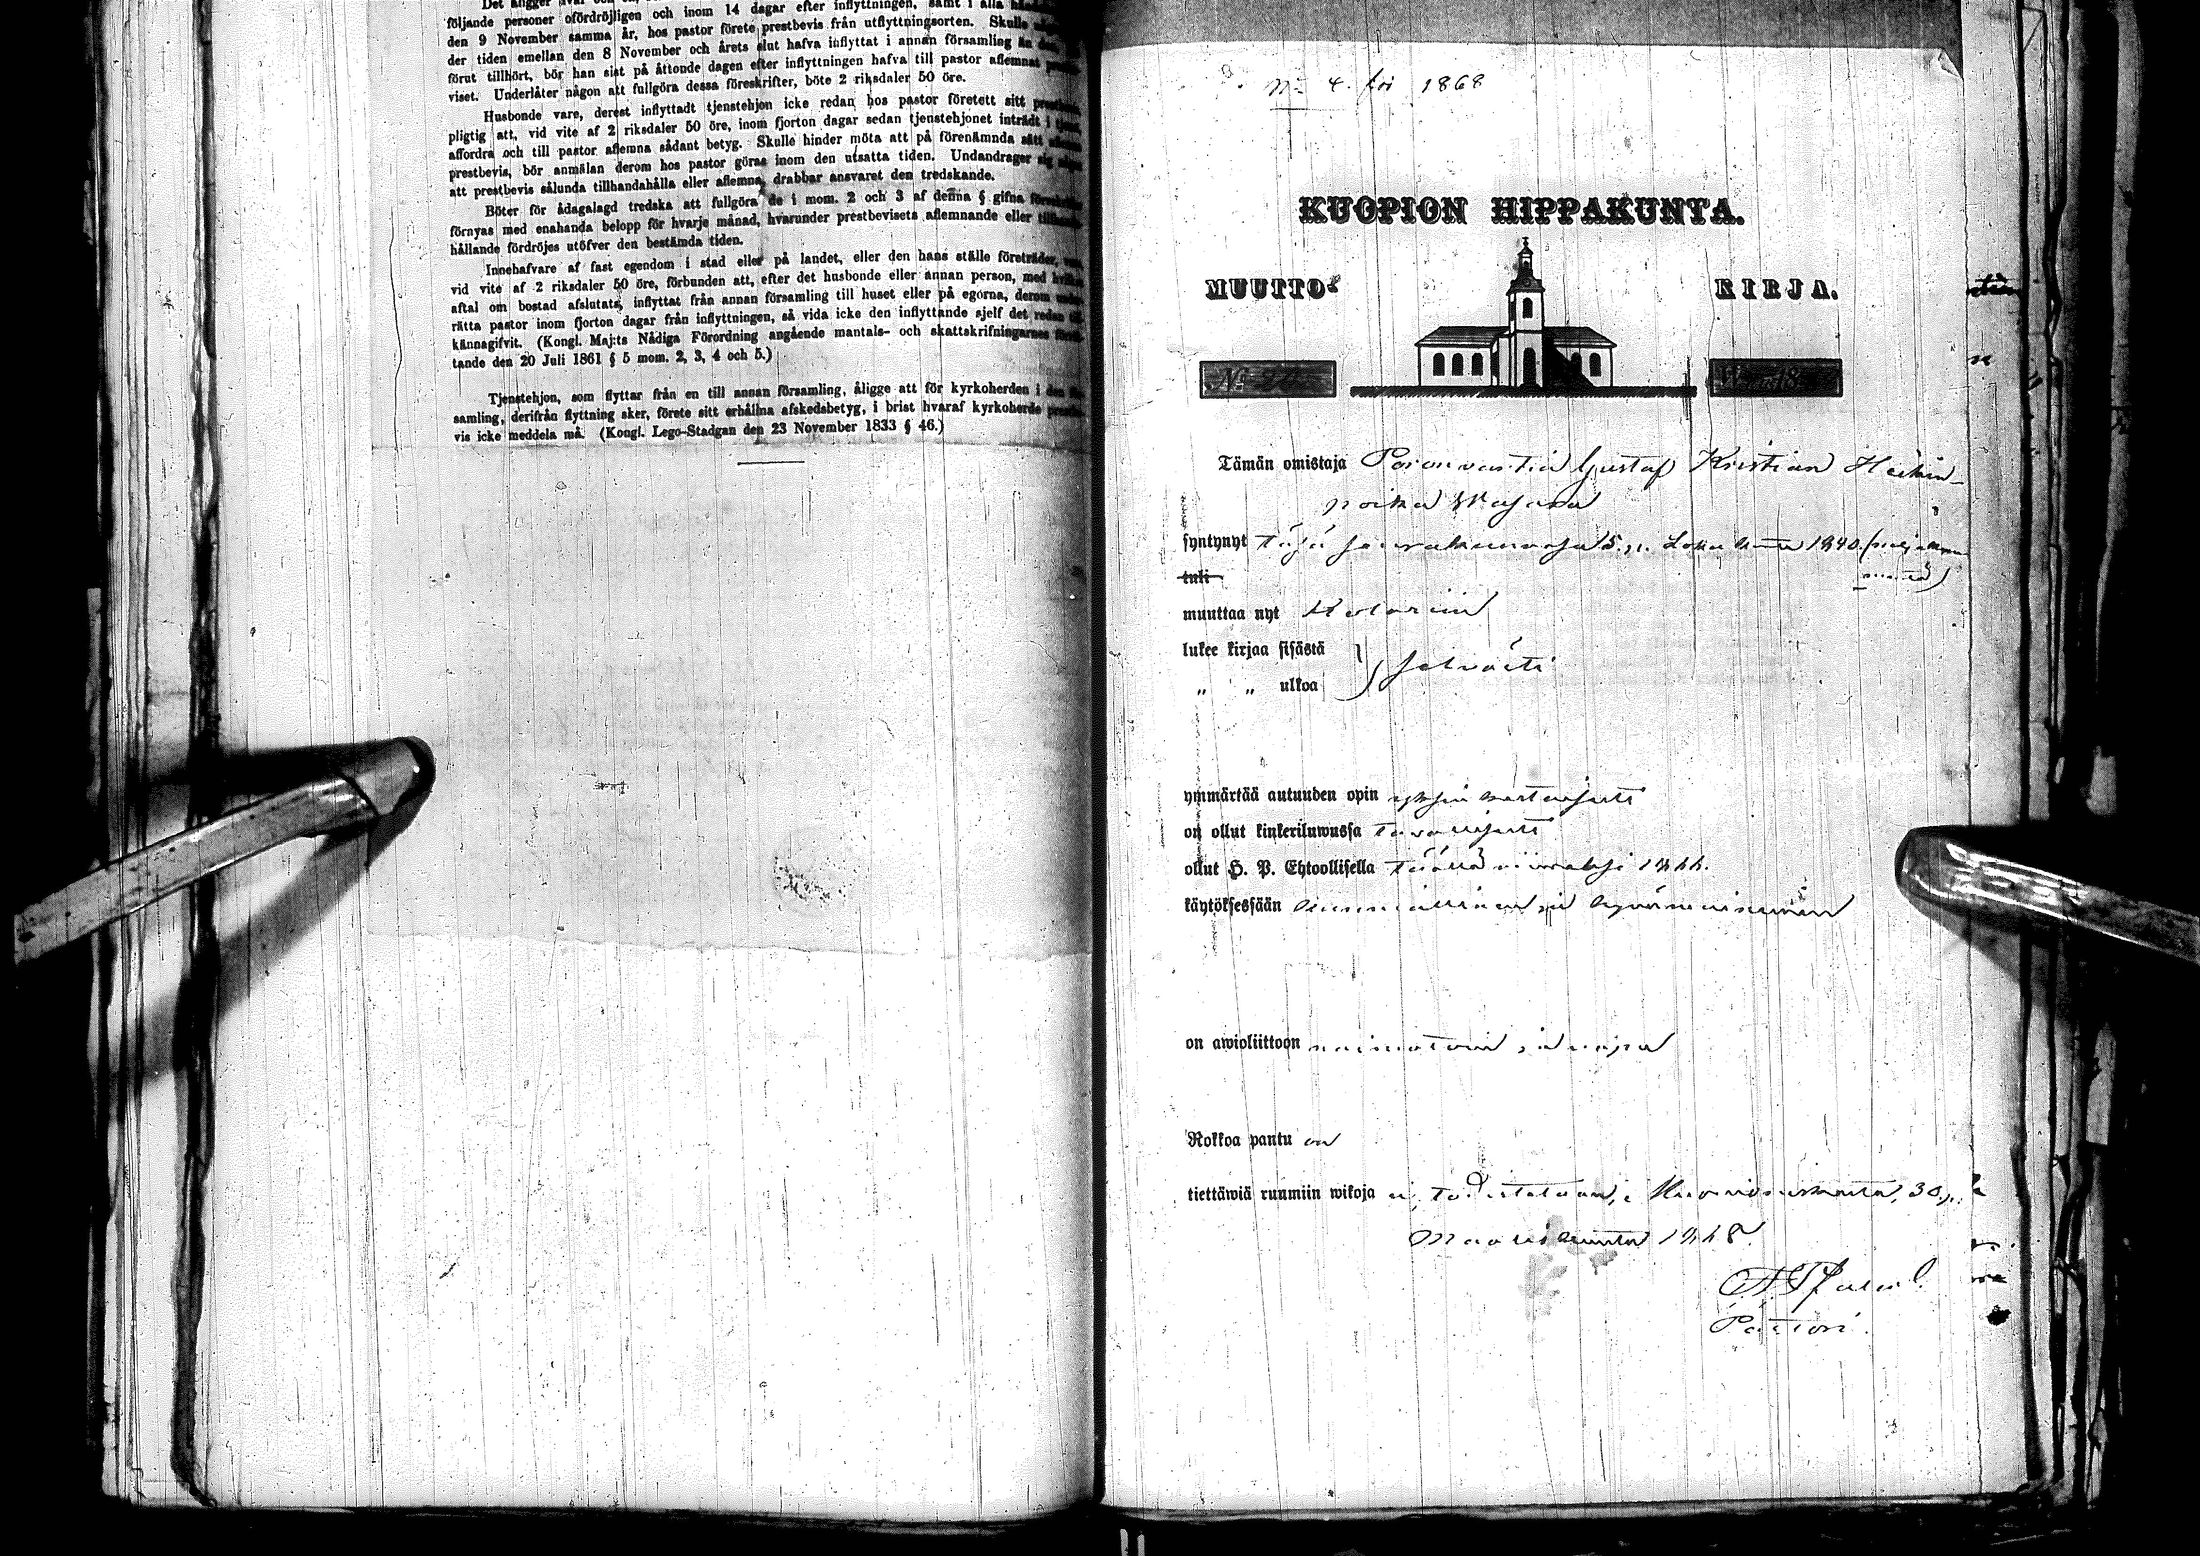 följande personer ofördröjligen och inom 14 dagar efter inflyttningen, samt i alla
den 9 November samma år, hos pastor förete prestbevis från utflyttningsorten. Skulle
der tiden emellan den 8 November och årets slut hafva inflyttat i annan församling än
förut tillhört, bör han sist på åttonde dagen efter inflyttningen hafva till pastor aflemnat
viset. Underlåter någon att fullgöra dessa föreskrifter, böte 2 riksdaler 50 öre.
Husbonde vare, derest inflyttadt tjenstehjon icke redan hos pastor företett sitt
pligtig att, vid vite af 2 riksdaler 50 öre, inom fjorton dagar sedan tjenstehjonet inträdt i
affordra och till pastor aflemna sådant betyg. Skulle hinder möta att på förenämnda sätt
prestbevis, bör anmälan derom hos pastor göras inom den utsatta tiden. Undandrager sig
att prestbevis sålunda tillhandahålla eller aflemna, drabbar ansvaret den tredskande.
Böter för ådagalagd tredska att fullgöra de i mom. 2 och 3 af denna § gifna
förnyas med enahanda belopp för hvarje månad, hvarunder prestbevisets aflemnande eller
hållande fördröjes utöfver den bestämda tiden.
Innehafvare af fast egendom i stad eller på landet, eller den hans ställe företräder,
vid vite af 2 riksdaler 50 öre, förbunden att, efter det husbonde eller annan person, med
aftal om bostad afslutats, inflyttat från annan församling till huset eller på egorna, derom
rätta pastor inom fjorton dagar från inflyttningen, så vida icke den inflyttande sjelf det redan
kännagifvit. (Kongl. Maj:ts Nådiga Förordning angående mantals- och skattskrifningarnes
tande den 20 Juli 1861 § 5 mom. 2, 3, 4 och 5.)
Tjenstehjon, som flyttar från en till annan församling, åligge att för kyrkoherden i den
samling, derifrån flyttning sker, förete sitt erhållna afskedsbetyg, i brist hvaraf kyrkoherde
vis icke meddela må. (Kongl. Lego-Stadgan den 23 November 1833 § 46.)
N:o 4. för 1868
KUOPION HIPPAKUNTA.
MUUTTO- KIRJA.
N:o
Tämän omistaja Gustaf Kristian Heikin-
poika
syntynyt tässä seurakunnassa 15 p. Loka kuuta 1840
tuli
muuttaa nyt Kolariin
lukee kirjaa sisästä
„ „ ulkoa } selvästi
ymmärtää autuuden opin yksinkertaisesti
on ollut kinkeriluwussa tavallisesti
ollut H. P. Ehtoollisella täällä viimeksi 1866.
käytöksessään kunniallinen ja hyvämaineinen
on awioliittoon naimatoin ja vapa
Rokkoa pantu on
tiettäwiä ruumiin wikoja ei, todistetaan, 30 p.
Maaliskuuta 1868.
Pastori.